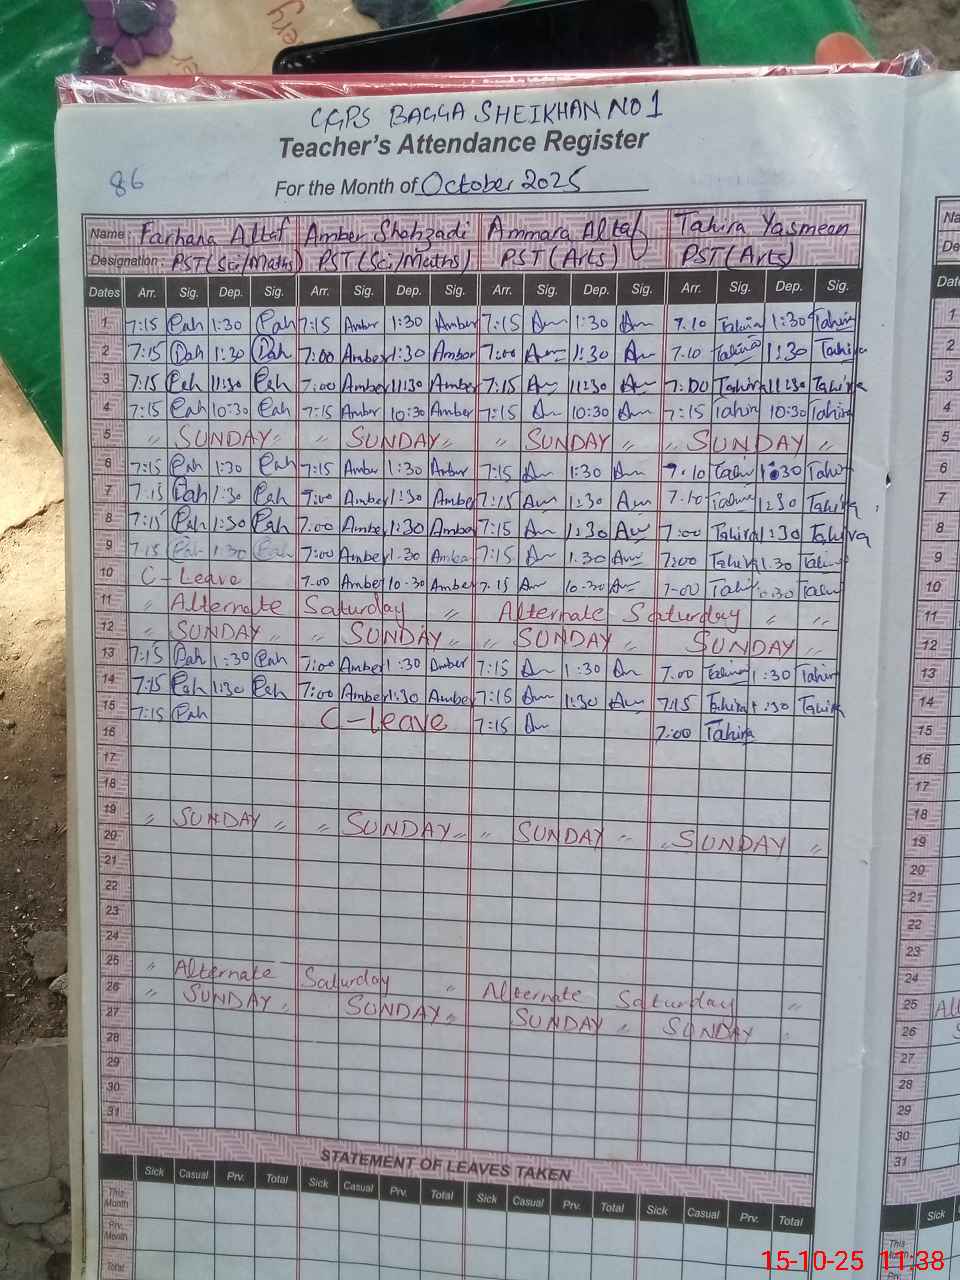 CGPS BAGGA SHEIKHAN NO 1
Teacher's Attendance Register
86
For the Month of October 2025
Name: Farhana Altaf Amber Shahzadi Ammara Altaf Tahira Yasmeen
Designation: PST(Sci/Maths) PST(Sci/Maths) PST(Arts) PST(Arts)
Dates Arr. Sig. Dep. Sig. Arr. Sig. Dep. Sig. Arr. Sig. Dep. Sig. Arr. Sig. Dep. Sig.
1 7:15 1:30 7:15 Amber 1:30 Amber 7:15 1:30 7.10 Tahira 1:30 Tahira
2 7:15 1:30 7:00 Amber 1:30 Amber 7:00 1:30 7.10 Tahira 1:30 Tahira
3 7:15 11:30 7:00 Amber 11:30 Amber 7:15 11:30 7:00 Tahira 11:30 Tahira
4 7:15 10:30 7:15 Amber 10:30 Amber 7:15 10:30 7:15 Tahira 10:30 Tahira
5 " SUNDAY " " SUNDAY " " SUNDAY " " SUNDAY "
6 7:15 1:30 7:15 Amber 1:30 Amber 7:15 1:30 7.10 1:30
7 7:15 1:30 7:00 Amber 1:30 Amber 7:15 1:30 7.10 1:30 Tahira
8 7:15 1:30 7:00 Amber 1:30 Amber 7:15 1:30 7:00 Tahira 1:30 Tahira
9 7:15 1:30 7:00 Amber 1.30 Amber 7:15 1.30 7:00 Tahira 1.30
10 C-Leave 7.00 Amber 10-30 Amber 7.15 10-30 7-00 10:30
11 " Alternate Saturday " Alternate Saturday " "
12 " SUNDAY " " SUNDAY " " SUNDAY " SUNDAY
13 7:15 1:30 7:00 Amber 1:30 Amber 7:15 1:30 7.00 Tahira 1:30 Tahira
14 7:15 1:30 7:00 Amber 1:30 Amber 7:15 1:30 7:15 Tahira 1:30 Tahira
15 7:15 C-Leave 7:15 7:00 Tahira
16
17
18
19 " SUNDAY " " SUNDAY " " SUNDAY " " SUNDAY "
20
21
22
23
24
25 " Alternate Saturday " Alternate Saturday "
26 " SUNDAY " SUNDAY " SUNDAY " SUNDAY "
27
28
29
30
31
STATEMENT OF LEAVES TAKEN
Sick Casual Prv. Total Sick Casual Prv. Total Sick Casual Prv. Total Sick Casual Prv. Total
This Month
Prv. Month
Total
Dates
1
2
3
4
5
6
7
8
9
10
11
12
13
14
15
16
17
18
19
20
21
22
23
24
25
26
27
28
29
30
31
Sick
This Month
15-10-25 11.38